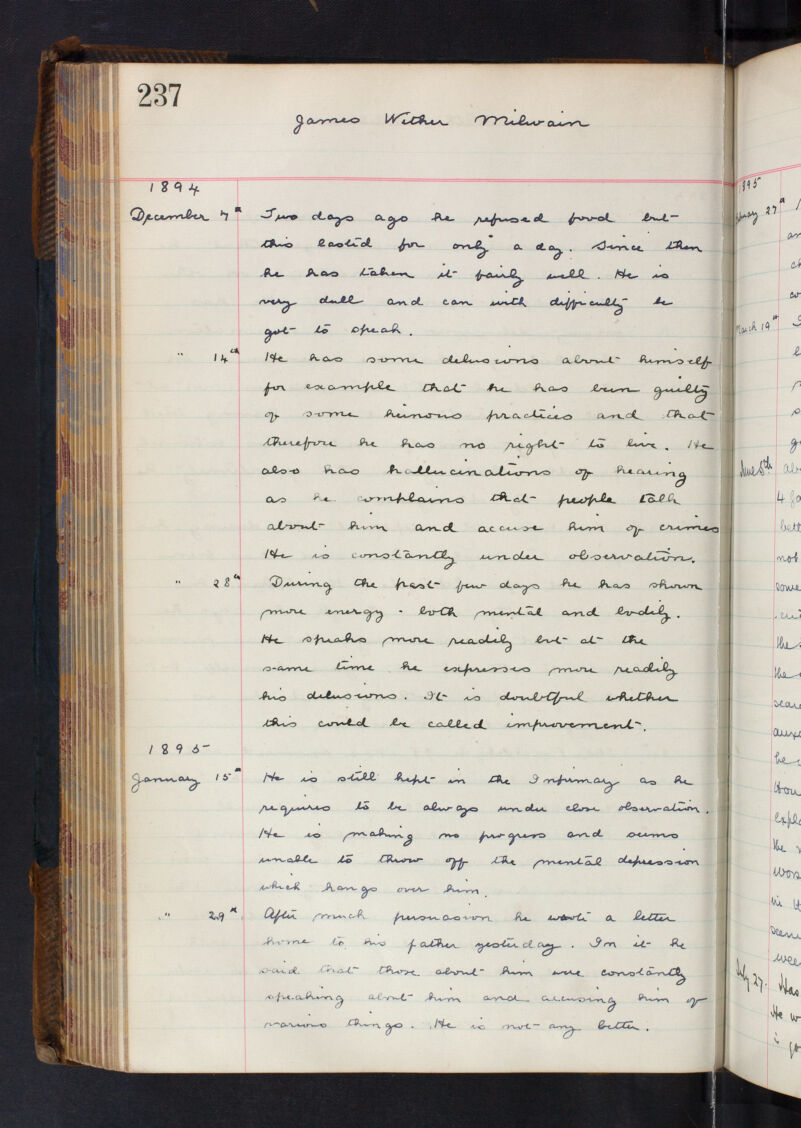 237
James Wither Milwain
1894
December 7th Two days ago he refused food but
this lasted for only a day. Since then
he has taken it fairly well. He is
very dull and can with difficulty be
got to speak.
" 14th He has some delusions about himself
for example that he has been guilty
of some heinous practices and that
therefore he has no right to live. He
also has hallucinations of hearing
as he complains that people talk
about him and accuse him of crimes
He is constantly under observation.
" 28th During the past few days he has shown
more energy - both mental and bodily.
He speaks more readily but at the
same time he expresses more readily
his delusions. It is doubtful whether
this could be called improvement.
1895
January 15th He is still kept in the Infirmary as he
requires to be always under close observation.
He is making no progress and seems
unable to throw off the mental depression
which hangs over him.
" 29th After much persuasion he wrote a letter
home to his father yesterday. In it he
said that those about him were constantly
speaking about him and accusing him of
various things. He is not any better.
895
27th
March 19th
June 8th
4
not
some
the
he
the
in
July 27. Has
He w